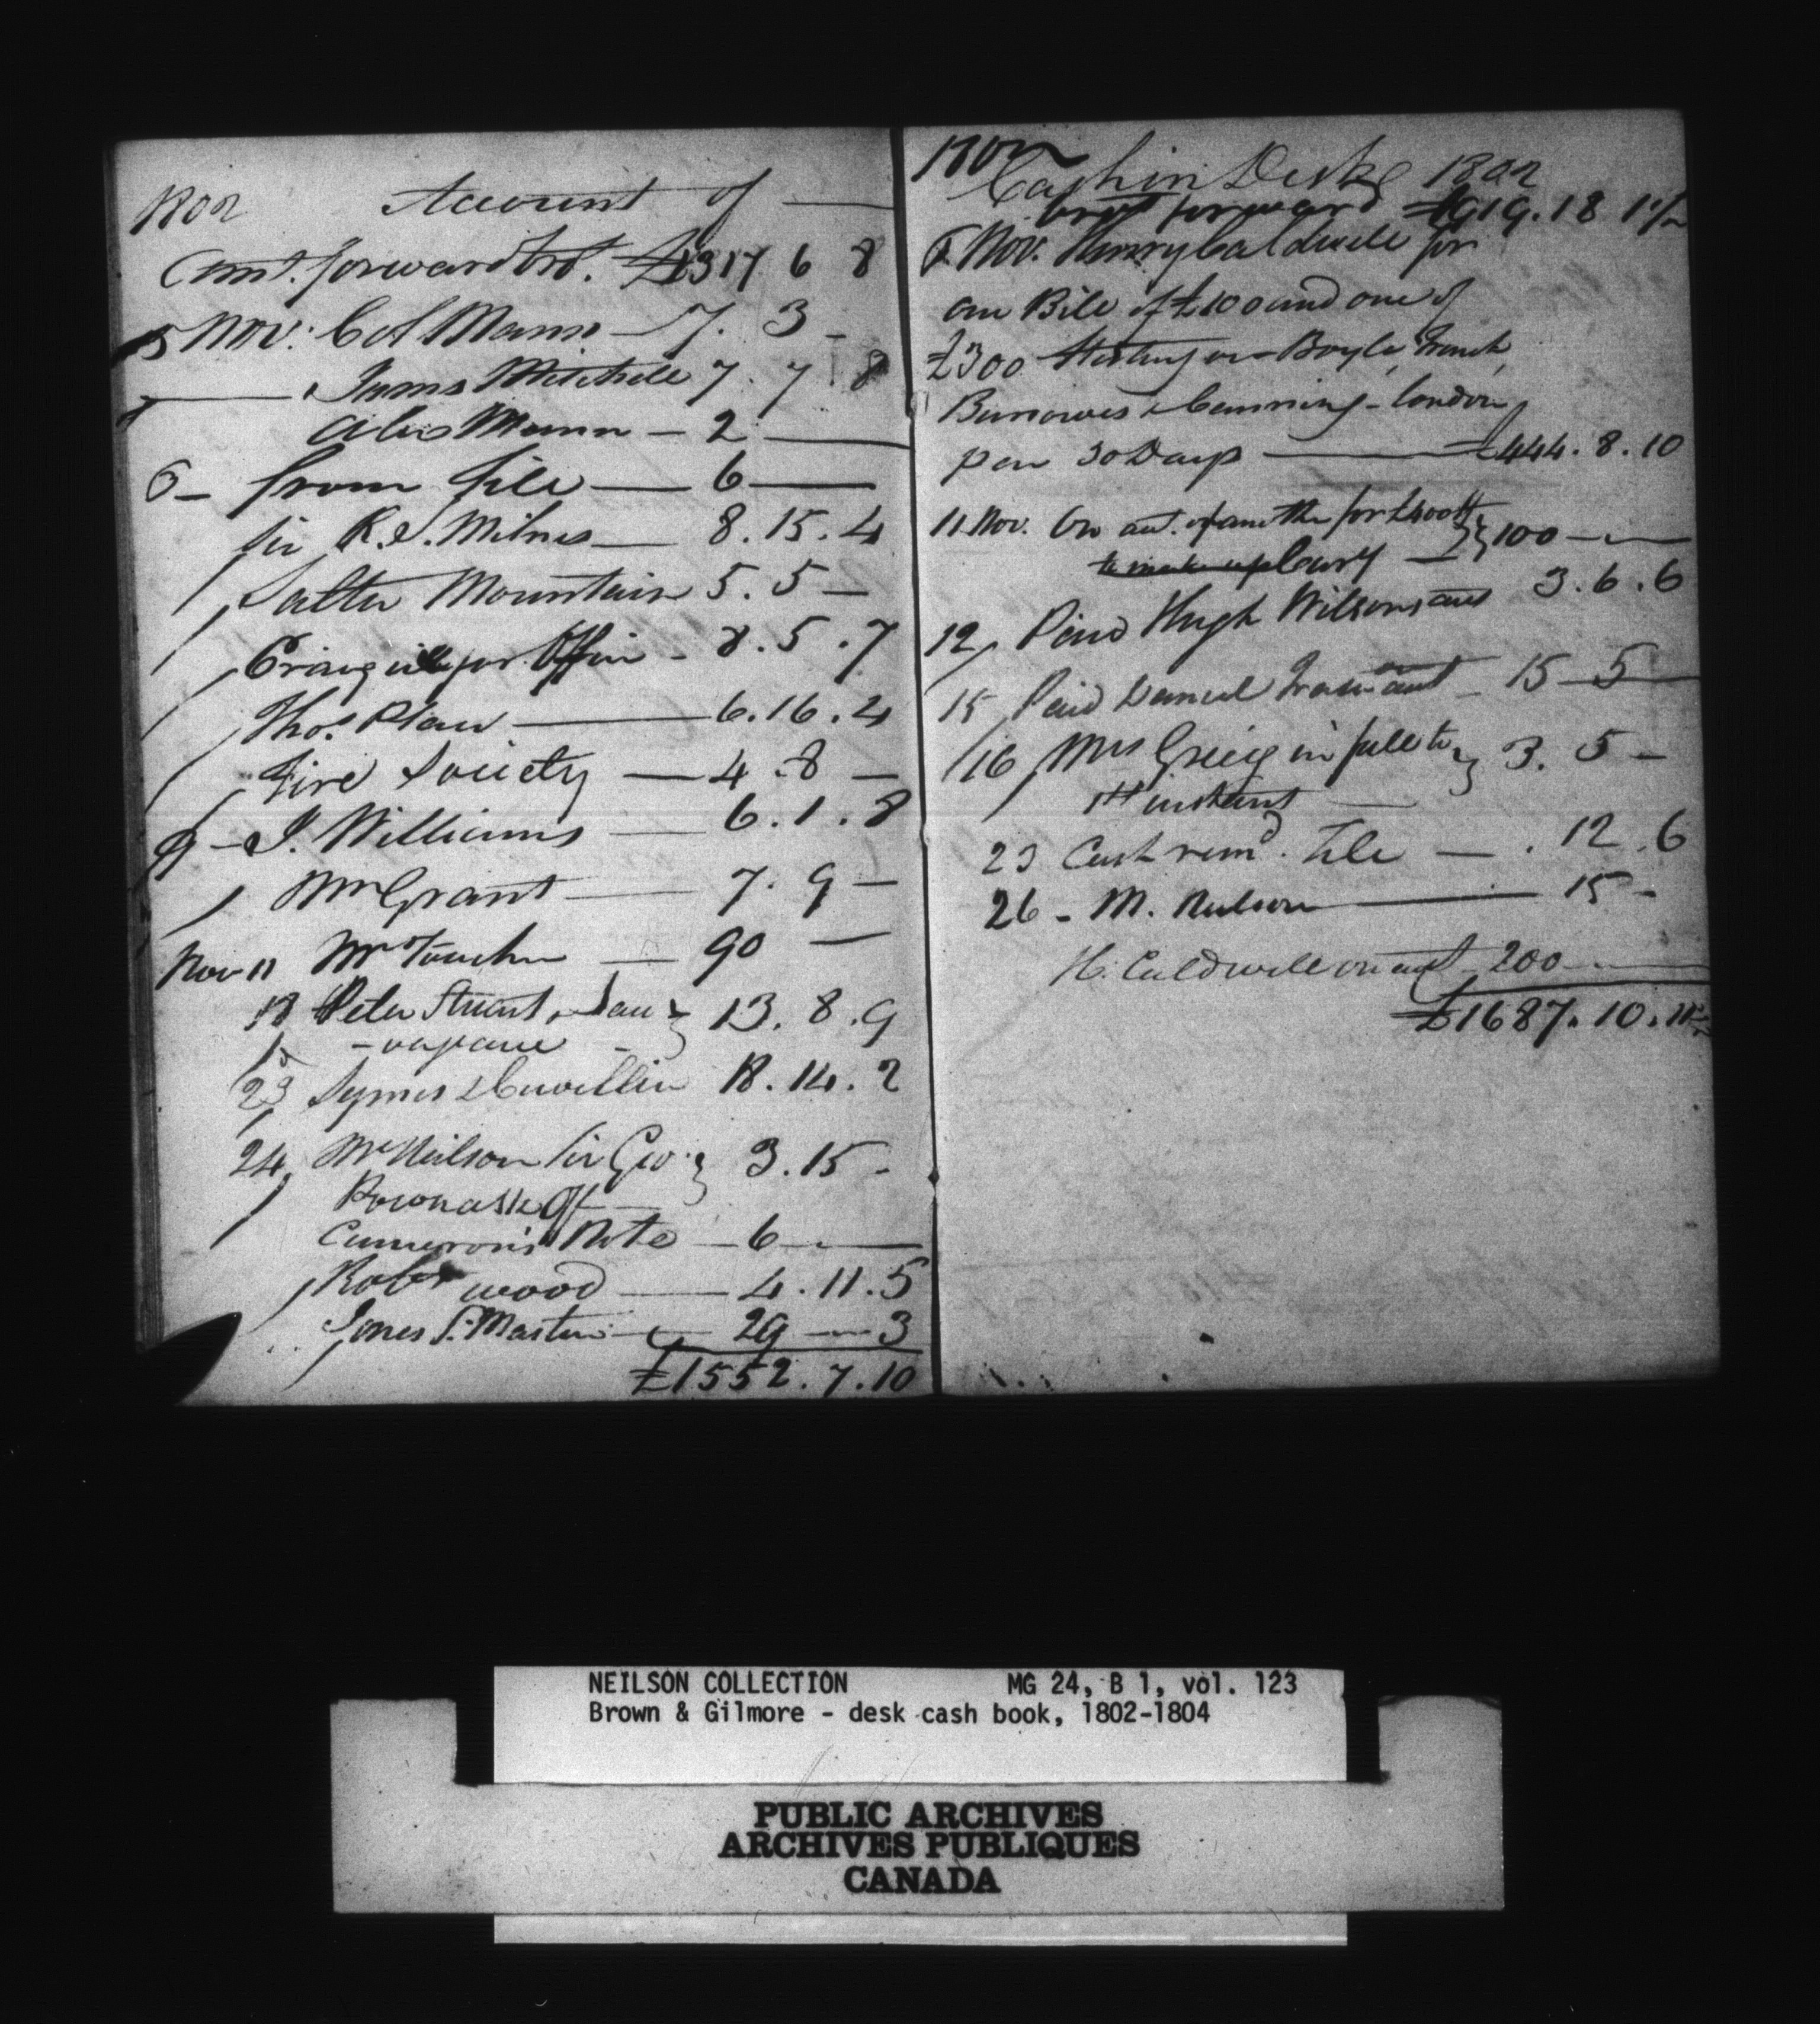 1802 Account of
Amt. forward brt. £1317 6 8
5 Nov: Col Mann 7. 3 -
James Mitchell 7. 7. 8
Alex Mann - 2
6 - from file - 6
Sir R. S. Milnes 8. 15. 4
Salter Mountain 5. 5 -
Craigie for Office - 8. 5. 7
Thos. Place 6. 16. 4
Fire Society - 4. 8 -
9 - J. Williams 6. 1. 8
Mr Grant 7. 9 -
Nov 11 Mr Toucher 90 -
18 Peter Stuart, 13. 8. 9
23 Symes & Cuvillier 18. 14. 2
24 Mr Neilson Sir Geo. 3. 15 -
Pownall's Off
Cameron's Note - 6
Robt wood 4. 11. 5
Jones S. Martin 29 - 3
£1552. 7. 10
1802
Cash in Desk 1802
brot forward £919. 18 1 1/2
Nov. Henry Caldwell for
one Bill of £100 and one of
£300 Sterling on Boyle, French,
Burrowes & Canning - London
pen 30 Days £444. 8. 10
11 Nov. On act. of another for £400 St 100
to make up Cary
12 Paid Hugh Wilsons act 3. 6. 6
15 Paid Daniel act 15 - 5
16 Mrs Greig in full to 3. 5 -
1st instant
23 Cash remd. File - . 12. 6
26 - M. Neilson 15 -
H. Caldwell on act 200
£1687. 10. 11 1/2
NEILSON COLLECTION MG 24, B 1, vol. 123
Brown & Gilmore - desk cash book, 1802-1804
PUBLIC ARCHIVES
ARCHIVES PUBLIQUES
CANADA